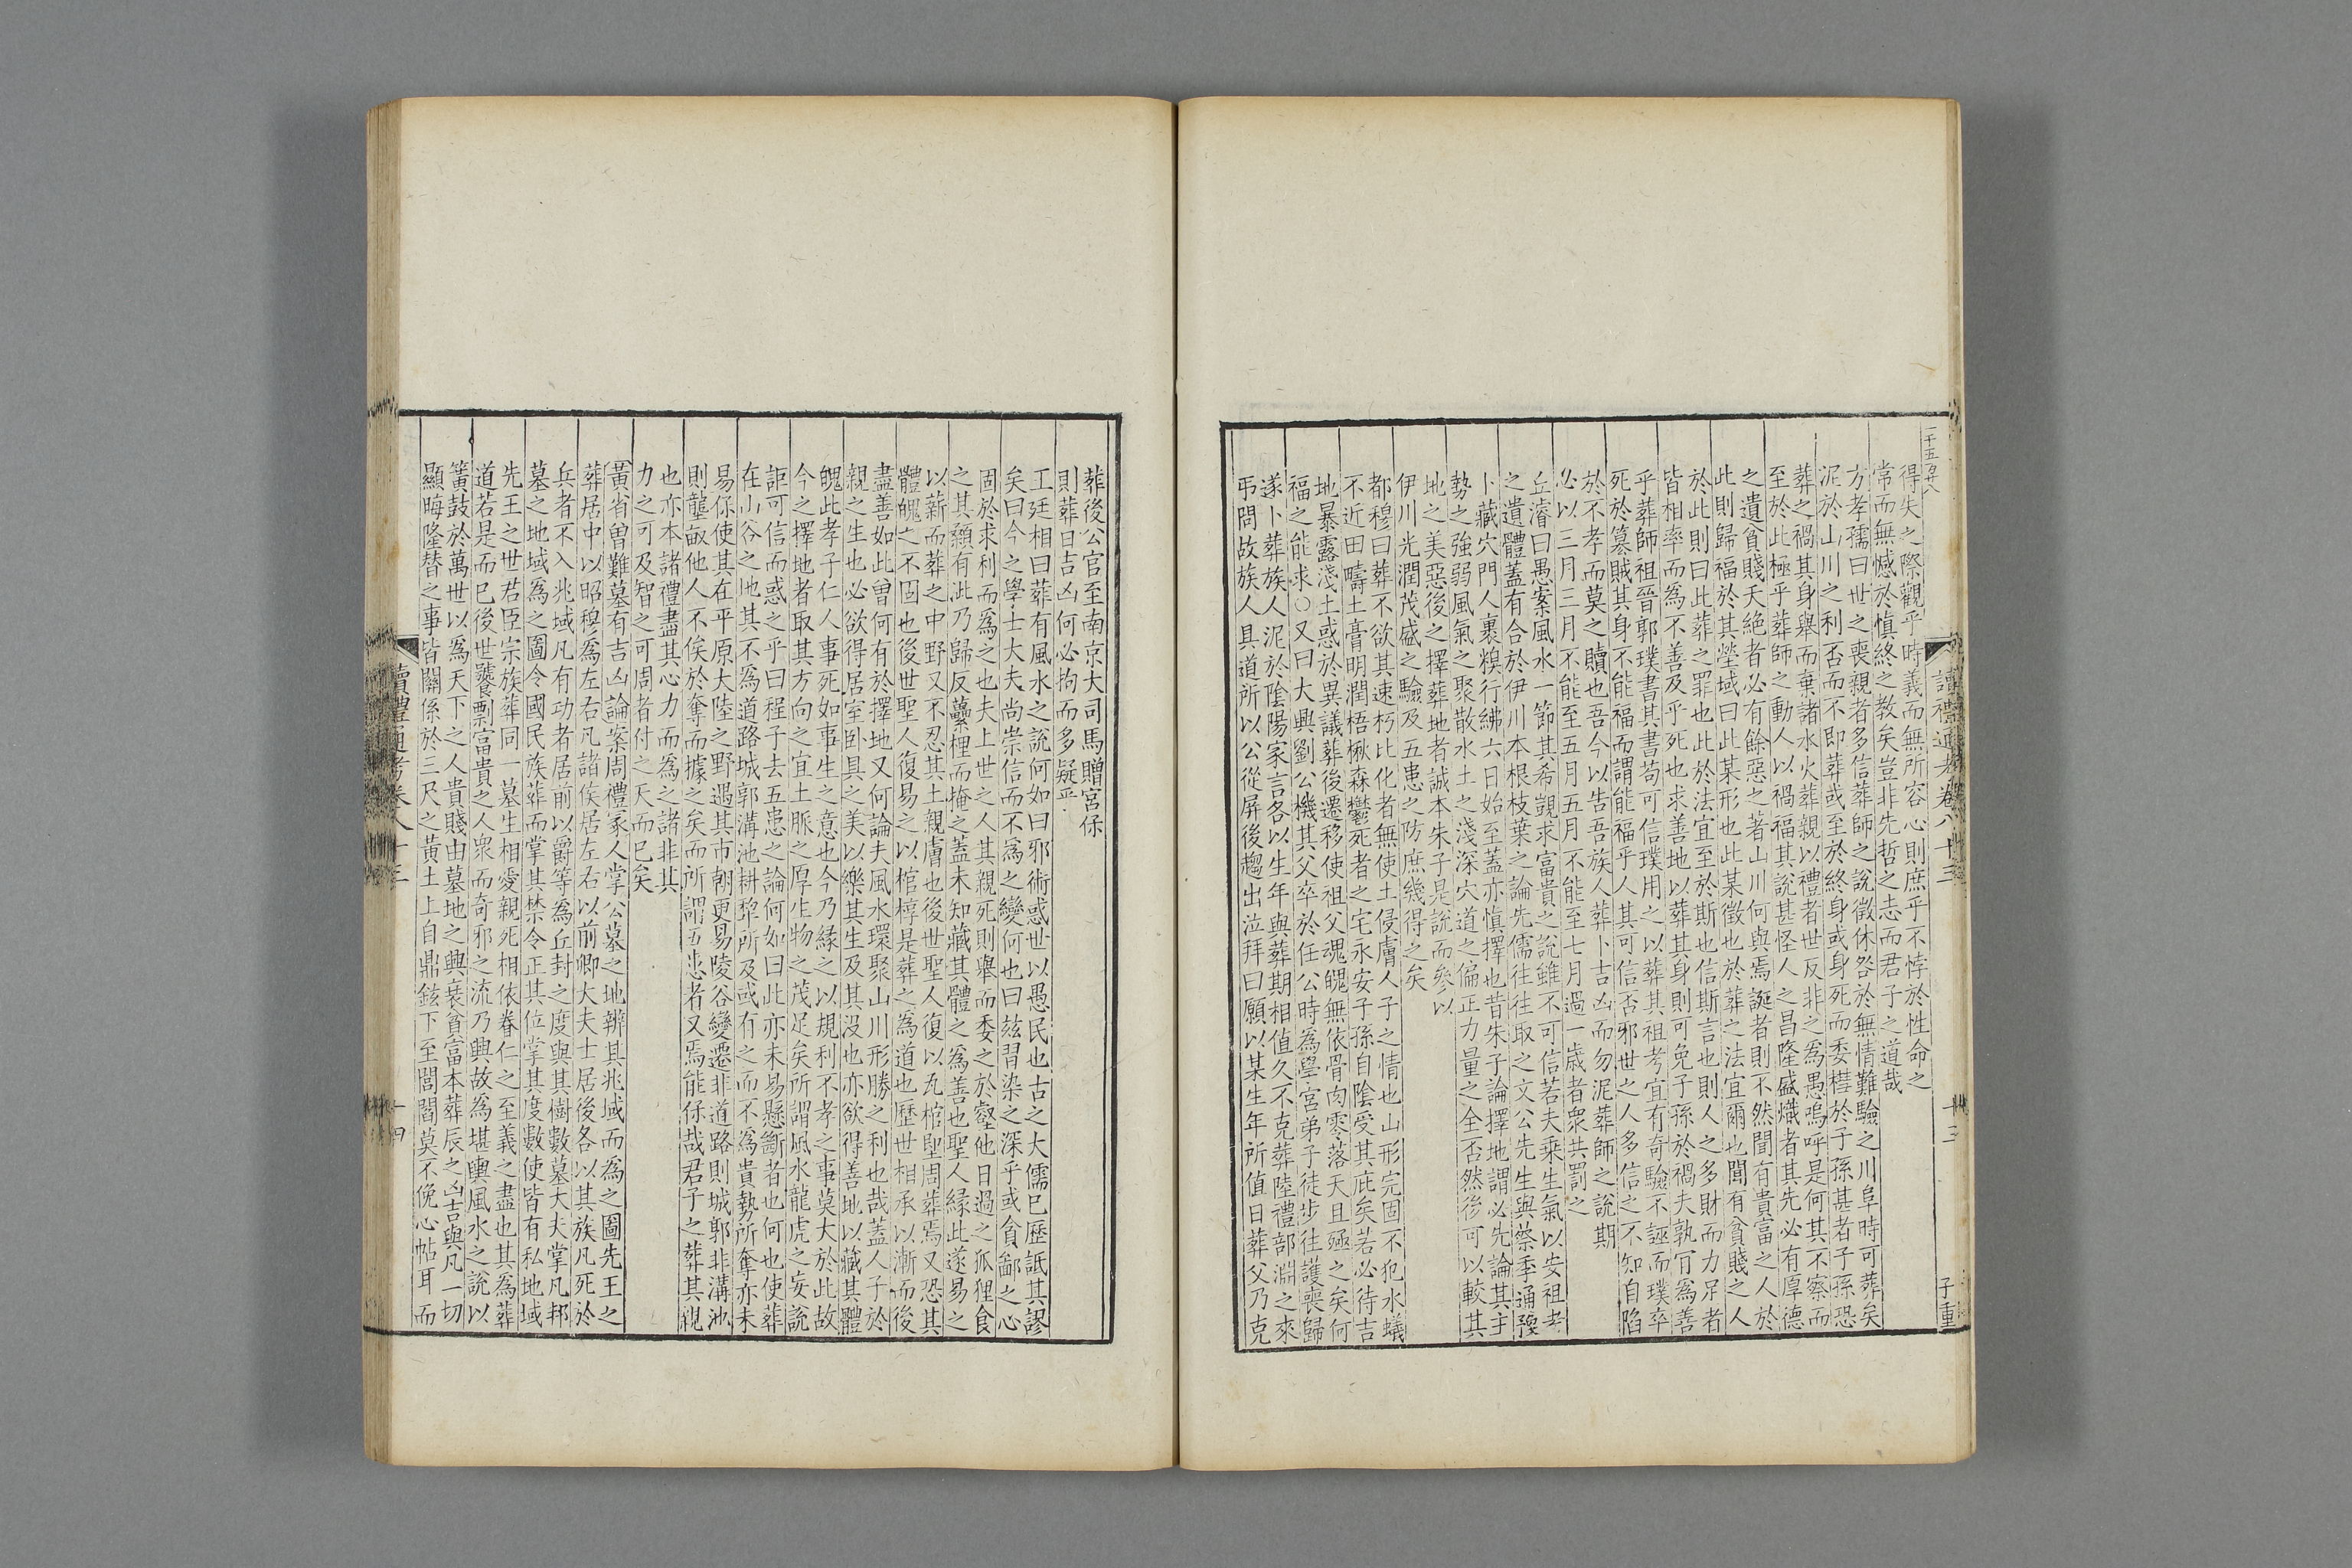 一千五百廿八
得失之際觀乎時義而無所容心則庶乎不悖於性命之
常而無憾於慎終之教矣豈非先哲之志而君子之道哉
方孝孺曰世之喪親者多信葬師之說徵休咎於無情難驗之川阜時可葬矣
泥於山川之利否而不即葬或至於終身或身死而委櫬於子孫甚者子孫恐
葬之禍其身舉而棄諸水火葬親以禮者世反非之為愚嗚呼是何其不察而
至於此極乎葬師之動人以禍福其說甚怪人之昌隆盛熾者其先必有厚德
之遺貧賤夭絕者必有餘惡之著山川何與焉誕者則不然聞有貴富之人於
此則歸福於其塋域曰此某形也此某徵也於葬之法宜爾也聞有貧賤之人
於此則曰此葬之罪也此於法宜至於斯也信斯言也則人之多財而力足者
皆相率而為不善及乎死也求善地以葬其身則可免子孫於禍夫孰肎為善
乎葬師祖晉郭璞書其書苟可信璞用之以葬其祖考宜有奇驗不誣而璞卒
死於篡賊其身不能福而謂能福乎人其可信否邪世之人多信之不知自陷
於不孝而莫之贖也吾今以告吾族人葬卜吉凶而勿泥葬師之說期
必以三月三月不能至五月五月不能至七月過一歳者衆共罰之
丘濬曰愚案風水一節其希覬求富貴之說雖不可信若夫乘生氣以安祖考
之遺體蓋有合於伊川本根枝葉之論先儒往往取之文公先生與蔡季通豫
卜藏穴門人裹糗行紼六日始至蓋亦慎擇也昔朱子論擇地謂必先論其主
勢之強弱風氣之聚散水土之淺深穴道之偏正力量之全否然後可以較其
地之美惡後之擇葬地者誠本朱子是說而參以
伊川光潤茂盛之驗及五患之防庶幾得之矣
都穆曰葬不欲其速朽比化者無使土侵膚人子之情也山形完固不犯水蟻
不近田疇土膏明潤梧楸森鬱死者之宅永安子孫自陰受其庇矣若必待吉
地暴露淺土惑於異議葬後遷移使祖父魂魄無依骨肉零落夭且殛之矣何
福之能求○又曰大興劉公機其父卒於任公時為學宮弟子徒步往護喪歸
遂卜葬族人泥於陰陽家言各以生年與葬期相值久不克葬陸禮部淵之來
弔問故族人具道所以公從屏後趨出泣拜曰願以某生年所值日葬父乃克
讀禮通考卷八十三
十三
子重
葬後公官至南京大司馬贈宮保
則葬日吉凶何必拘而多疑乎
王廷相曰葬有風水之說何如曰邪術惑世以愚民也古之大儒已歷詆其謬
矣曰今之學士大夫尚崇信而不為之變何也曰茲習染之深乎或貪鄙之心
固於求利而為之也夫上世之人其親死則舉而委之於壑他日過之狐狸食
之其顙有泚乃歸反虆梩而掩之蓋未知藏其體之為善也聖人緣此遂易之
以薪而葬之中野又不忍其土親膚也後世聖人復以瓦棺堲周葬焉又恐其
體魄之不固也後世聖人復易之以棺椁是葬之為道也歷世相承以漸而後
盡善如此曾何有於擇地又何論夫風水環聚山川形勝之利也哉蓋人子於
親之生也必欲得居室卧具之美以樂其生及其沒也亦欲得善地以藏其體
魄此孝子仁人事死如事生之意也今乃緣之以規利不孝之事莫大於此故
今之擇地者取其方向之宜土脈之厚生物之茂足矣所謂風水龍虎之妄說
詎可信而惑之乎曰程子去五患之論何如曰此亦未易懸斷者也何也使葬
在山谷之地其不為道路城郭溝池耕犂所及或有之而不為貴勢所奪亦未
易保使其在平原大陸之野遇其市朝更易陵谷變遷非道路則城郭非溝池
則隴畝他人不俟於奪而據之矣而所謂五患者又焉能保哉君子之葬其親
也亦本諸禮盡其心力而為之諸非其
力之可及智之可周者付之天而已矣
黃省曾難墓有吉凶論案周禮冢人掌公墓之地辨其兆域而為之圖先王之
葬居中以昭穆為左右凡諸侯居左右以前卿大夫士居後各以其族凡死於
兵者不入兆域凡有功者居前以爵等為丘封之度與其樹數墓大夫掌凡邦
墓之地域為之圖令國民族葬而掌其禁令正其位掌其度數使皆有私地域
先王之世君臣宗族葬同一墓生相愛親死相依眷仁之至義之盡也其為葬
道若是而已後世饕剽富貴之人衆而奇邪之流乃興故為堪輿風水之說以
簧鼓於萬世以為天下之人貴賤由墓地之興衰貧富本葬辰之凶吉與凡一切
顯晦隆替之事皆關係於三尺之黃土上自鼎鉉下至閭閻莫不俛心帖耳而
讀禮通考卷八十三
十四